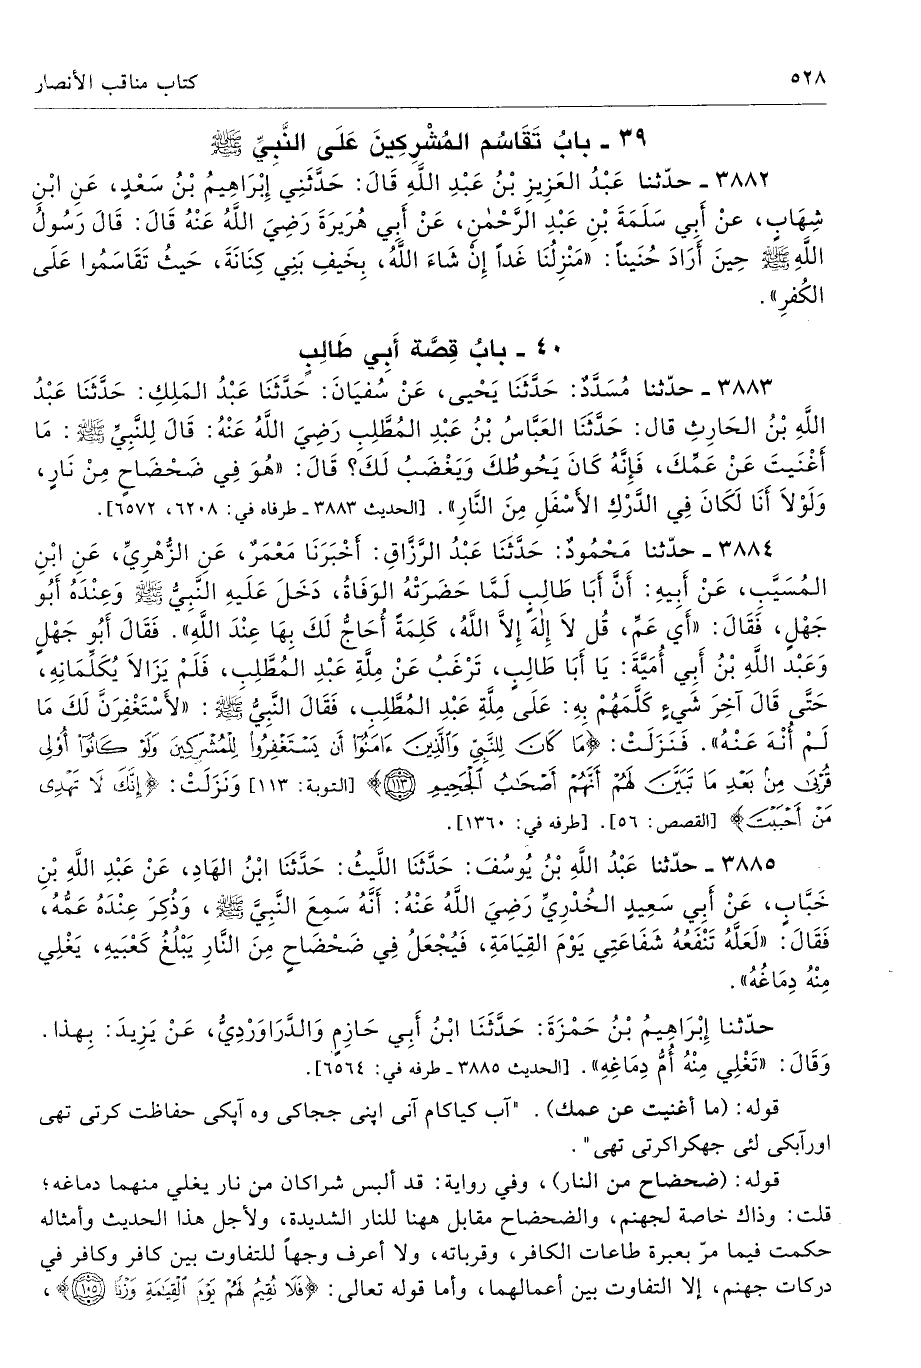 ٥٢٨
كتاب مناقب الأنصار
٣٩ ـ بابُ تَقَاسُمِ المُشْرِكِينَ عَلَى النَّبِيِّ ﷺ
٣٨٨٢ ـ حدّثنا عَبْدُ العَزِيزِ بْنُ عَبْدِ اللَّهِ قَالَ: حَدَّثَنِي إِبْرَاهِيمُ بْنُ سَعْدٍ، عَنِ ابْنِ
شِهَابٍ، عنْ أَبِي سَلَمَةَ بْنِ عَبْدِ الرَّحْمٰنِ، عَنْ أَبِي هُرَيرَةَ رَضِيَ اللَّهُ عَنْهُ قَالَ: قَالَ رَسُولُ
اللَّهِ ﷺ حِينَ أَرَادَ حُنَيناً: «مَنْزِلُنَا غَداً إِنْ شَاءَ اللَّهُ، بِخَيفِ بَنِي كِنَانَةَ، حَيثُ تَقَاسَمُوا عَلَى
الكُفرِ».
٤٠ ـ بابُ قِصَّة أَبِي طَالِبٍ
٣٨٨٣ ـ حدّثنا مُسَدَّدٌ: حَدَّثَنَا يَحْيى، عَنْ سُفيَانَ: حَدَّثَنَا عَبْدُ المَلِكِ: حَدَّثَنَا عَبْدُ
اللَّهِ بْنُ الحَارِثِ قال: حَدَّثَنَا العَبَّاسُ بْنُ عَبْدِ المُطَّلِبِ رَضِيَ اللَّهُ عَنْهُ: قَالَ لِلنَّبِيِّ ﷺ: مَا
أَغْنَيتَ عَنْ عَمِّكَ، فَإِنَّهُ كَانَ يَحُوطُكَ وَيَغْضَبُ لَكَ؟ قَالَ: «هُوَ فِي ضَحْضَاحٍ مِنْ نَارٍ،
وَلَوْلاَ أَنَا لَكَانَ فِي الدَّرْكِ الأَسْفَلِ مِنَ النَّارِ». [الحديث ٣٨٨٣ ـ طرفاه في: ٦٢٠٨، ٦٥٧٢].
٣٨٨٤ ـ حدّثنا مَحْمُودٌ: حَدَّثَنَا عَبْدُ الرَّزَّاقِ: أَخْبَرَنَا مَعْمَرٌ، عَنِ الزُّهْرِيِّ، عَنِ ابْنِ
المُسَيَّبِ، عَنْ أَبِيهِ: أَنَّ أَبَا طَالِبٍ لَمَّا حَضَرَتْهُ الوَفَاةُ، دَخَلَ عَلَيهِ النَّبِيُّ ﷺ وَعِنْدَهُ أَبُو
جَهْلٍ، فَقَالَ: «أَي عَمِّ، قُل لاَ إِلٰهَ إِلاَّ اللَّهُ، كَلِمَةً أُحَاجُّ لَكَ بِهَا عِنْدَ اللَّهِ». فَقَالَ أَبُو جَهْلٍ
وَعَبْد اللَّهِ بْنُ أَبِي أُمَيَّةَ: يَا أَبَا طَالِبٍ، تَرْغَبُ عَنْ مِلَّةِ عَبْدِ المُطَّلِبِ، فَلَمْ يَزَالاَ يُكَلِّمَانِهِ،
حَتَّى قَالَ آخِرَ شَيءٍ كَلَّمَهُمْ بِهِ: عَلَى مِلَّةِ عَبْدِ المُطَّلِبِ، فَقَالَ النَّبِيُّ ﷺ: «لأَسْتَغْفِرَنَّ لَكَ مَا
لَمْ أُنْهَ عَنْهُ». فَنَزَلَتْ: ﴿مَا كَانَ لِلنَّبِيِّ وَٱلَّذِينَ ءَامَنُوٓا أَن يَسْتَغْفِرُوا لِلْمُشْرِكِينَ وَلَوْ كَانُوٓا أُوْلِى
قُرْبَى مِنۢ بَعْدِ مَا تَبَيَّنَ لَهُمْ أَنَّهُمْ أَصْحَٰبُ ٱلْجَحِيمِ ١١٣﴾ [التوبة: ١١٣] وَنَزَلَتْ: ﴿إِنَّكَ لَا تَهْدِى
مَنْ أَحْبَبْتَ﴾ [القصص: ٥٦]. [طرفه في: ١٣٦٠].
٣٨٨٥ ـ حدّثنا عَبْدُ اللَّهِ بْنُ يُوسُفَ: حَدَّثَنَا اللَّيثُ: حَدَّثَنَا ابْنُ الهَادِ، عَنْ عَبْدِ اللَّهِ بْنِ
خَبَّابٍ، عَنْ أَبِي سَعِيدٍ الخُدْرِيِّ رَضِيَ اللَّهُ عَنْهُ: أَنَّهُ سَمِعَ النَّبِيَّ ﷺ، وَذُكِرَ عِنْدَهُ عَمُّهُ،
فَقَالَ: «لَعَلَّهُ تَنْفَعُهُ شَفَاعَتِي يَوْمَ القِيَامَةِ، فَيُجْعَلُ فِي ضَحْضَاحٍ مِنَ النَّارِ يَبْلُغُ كَعْبَيهِ، يَغْلِي
مِنْهُ دِمَاغُهُ».
حدّثنا إِبْرَاهِيمُ بْنُ حَمْزَةَ: حَدَّثَنَا ابْنُ أَبِي حَازِمٍ وَالدَّرَاوَرْدِيُّ، عَنْ يَزِيدَ: بِهذا.
وَقَالَ: «تَغْلِي مِنْهُ أُمُّ دِمَاغِهِ». [الحديث ٣٨٨٥ ـ طرفه في: ٦٥٦٤].
قوله: (ما أغنيت عن عمك). "آب كياكام آنى ابنى ججاكى وه آبكى حفاظت كرتى تهى
اورآبكى لئى جهكراكرتى تهى".
قوله: (ضحضاح من النار)، وفي رواية: قد ألبس شراكان من نار يغلي منهما دماغه؛
قلت: وذاك خاصة لجهنم، والضحضاح مقابل ههنا للنار الشديدة، ولأجل هذا الحديث وأمثاله
حكمت فيما مرّ بعبرة طاعات الكافر، وقرباته، ولا أعرف وجهاً للتفاوت بين كافر وكافر في
دركات جهنم، إلا التفاوت بين أعمالهما، وأما قوله تعالى: ﴿فَلَا نُقِيمُ لَهُمْ يَوْمَ ٱلْقِيَٰمَةِ وَزْنًا ١٠٥﴾،